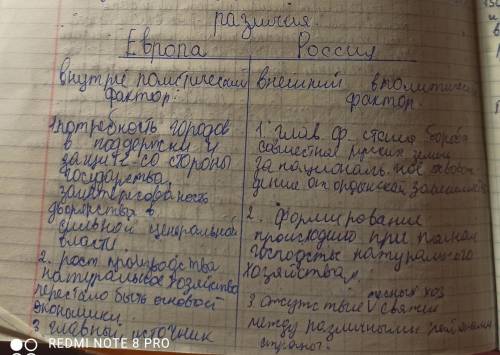 различия.
Европа Россия
внутре политический внешний вполитичес
фактор: фактор.
1потребность городов
в поддержки и
защите со стороны
государства,
заинтересованость
дворянства в
сильной центральной
власти
2. рост производства
натуральное хозяйство
перестало быть основой
экономики.
3 главный источник
1. глав ф. стала борьба
совместная русских земель
за националь ное освобо
ждение от ордынской зависимости
2. Формирование
происходило при полном
господстве натурального
хозяйства,
3 отсутствие тесных хоз
связей
между различными районами
страны.
REDMI NOTE 8 PRO